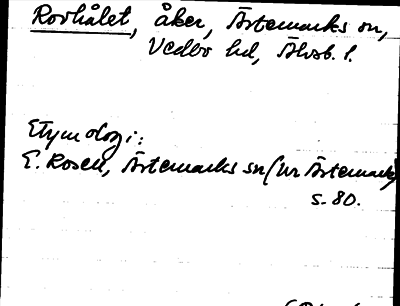 Rovhålet, åker, Ärtemarks sn,
Vedbo hd, Älvsb. l.
Etymologi:
E. Rosell, Ärtemarks sn (ur Ärtemark)
s. 80.